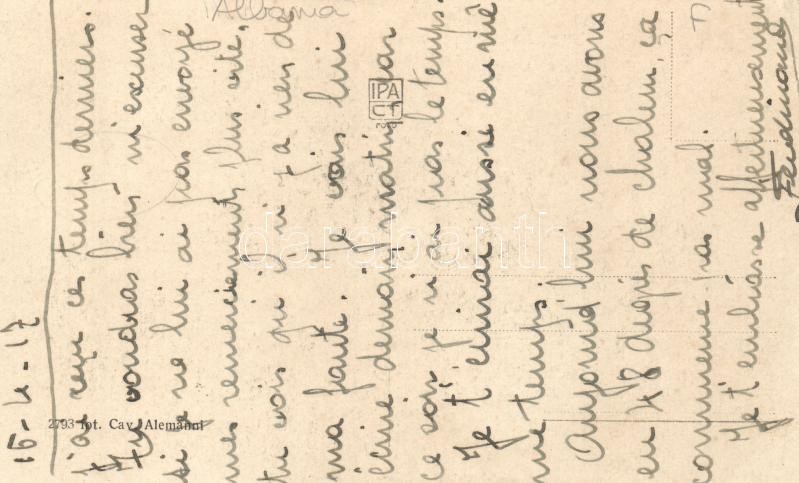 Albania
15-4-17
j'ai reçu ces temps derniers.
Tu voudras bien m'excuser
si je ne lui ai pas envoyé
mes remerciements plus vite,
tu vois qu'il n'y a rien de
ma faute. Je vais lui
écrire demain matin car
ce soir je n'ai pas le temps.
Je t'écrirai aussi en même
temps.
Aujourd'hui nous avons
eu 48 degrés de chaleur, ça
commence pas mal.
Je t'embrasse affectueusement
Ferdinand
IPA CT
2793 fot. Cav. Alemanni
darabanth